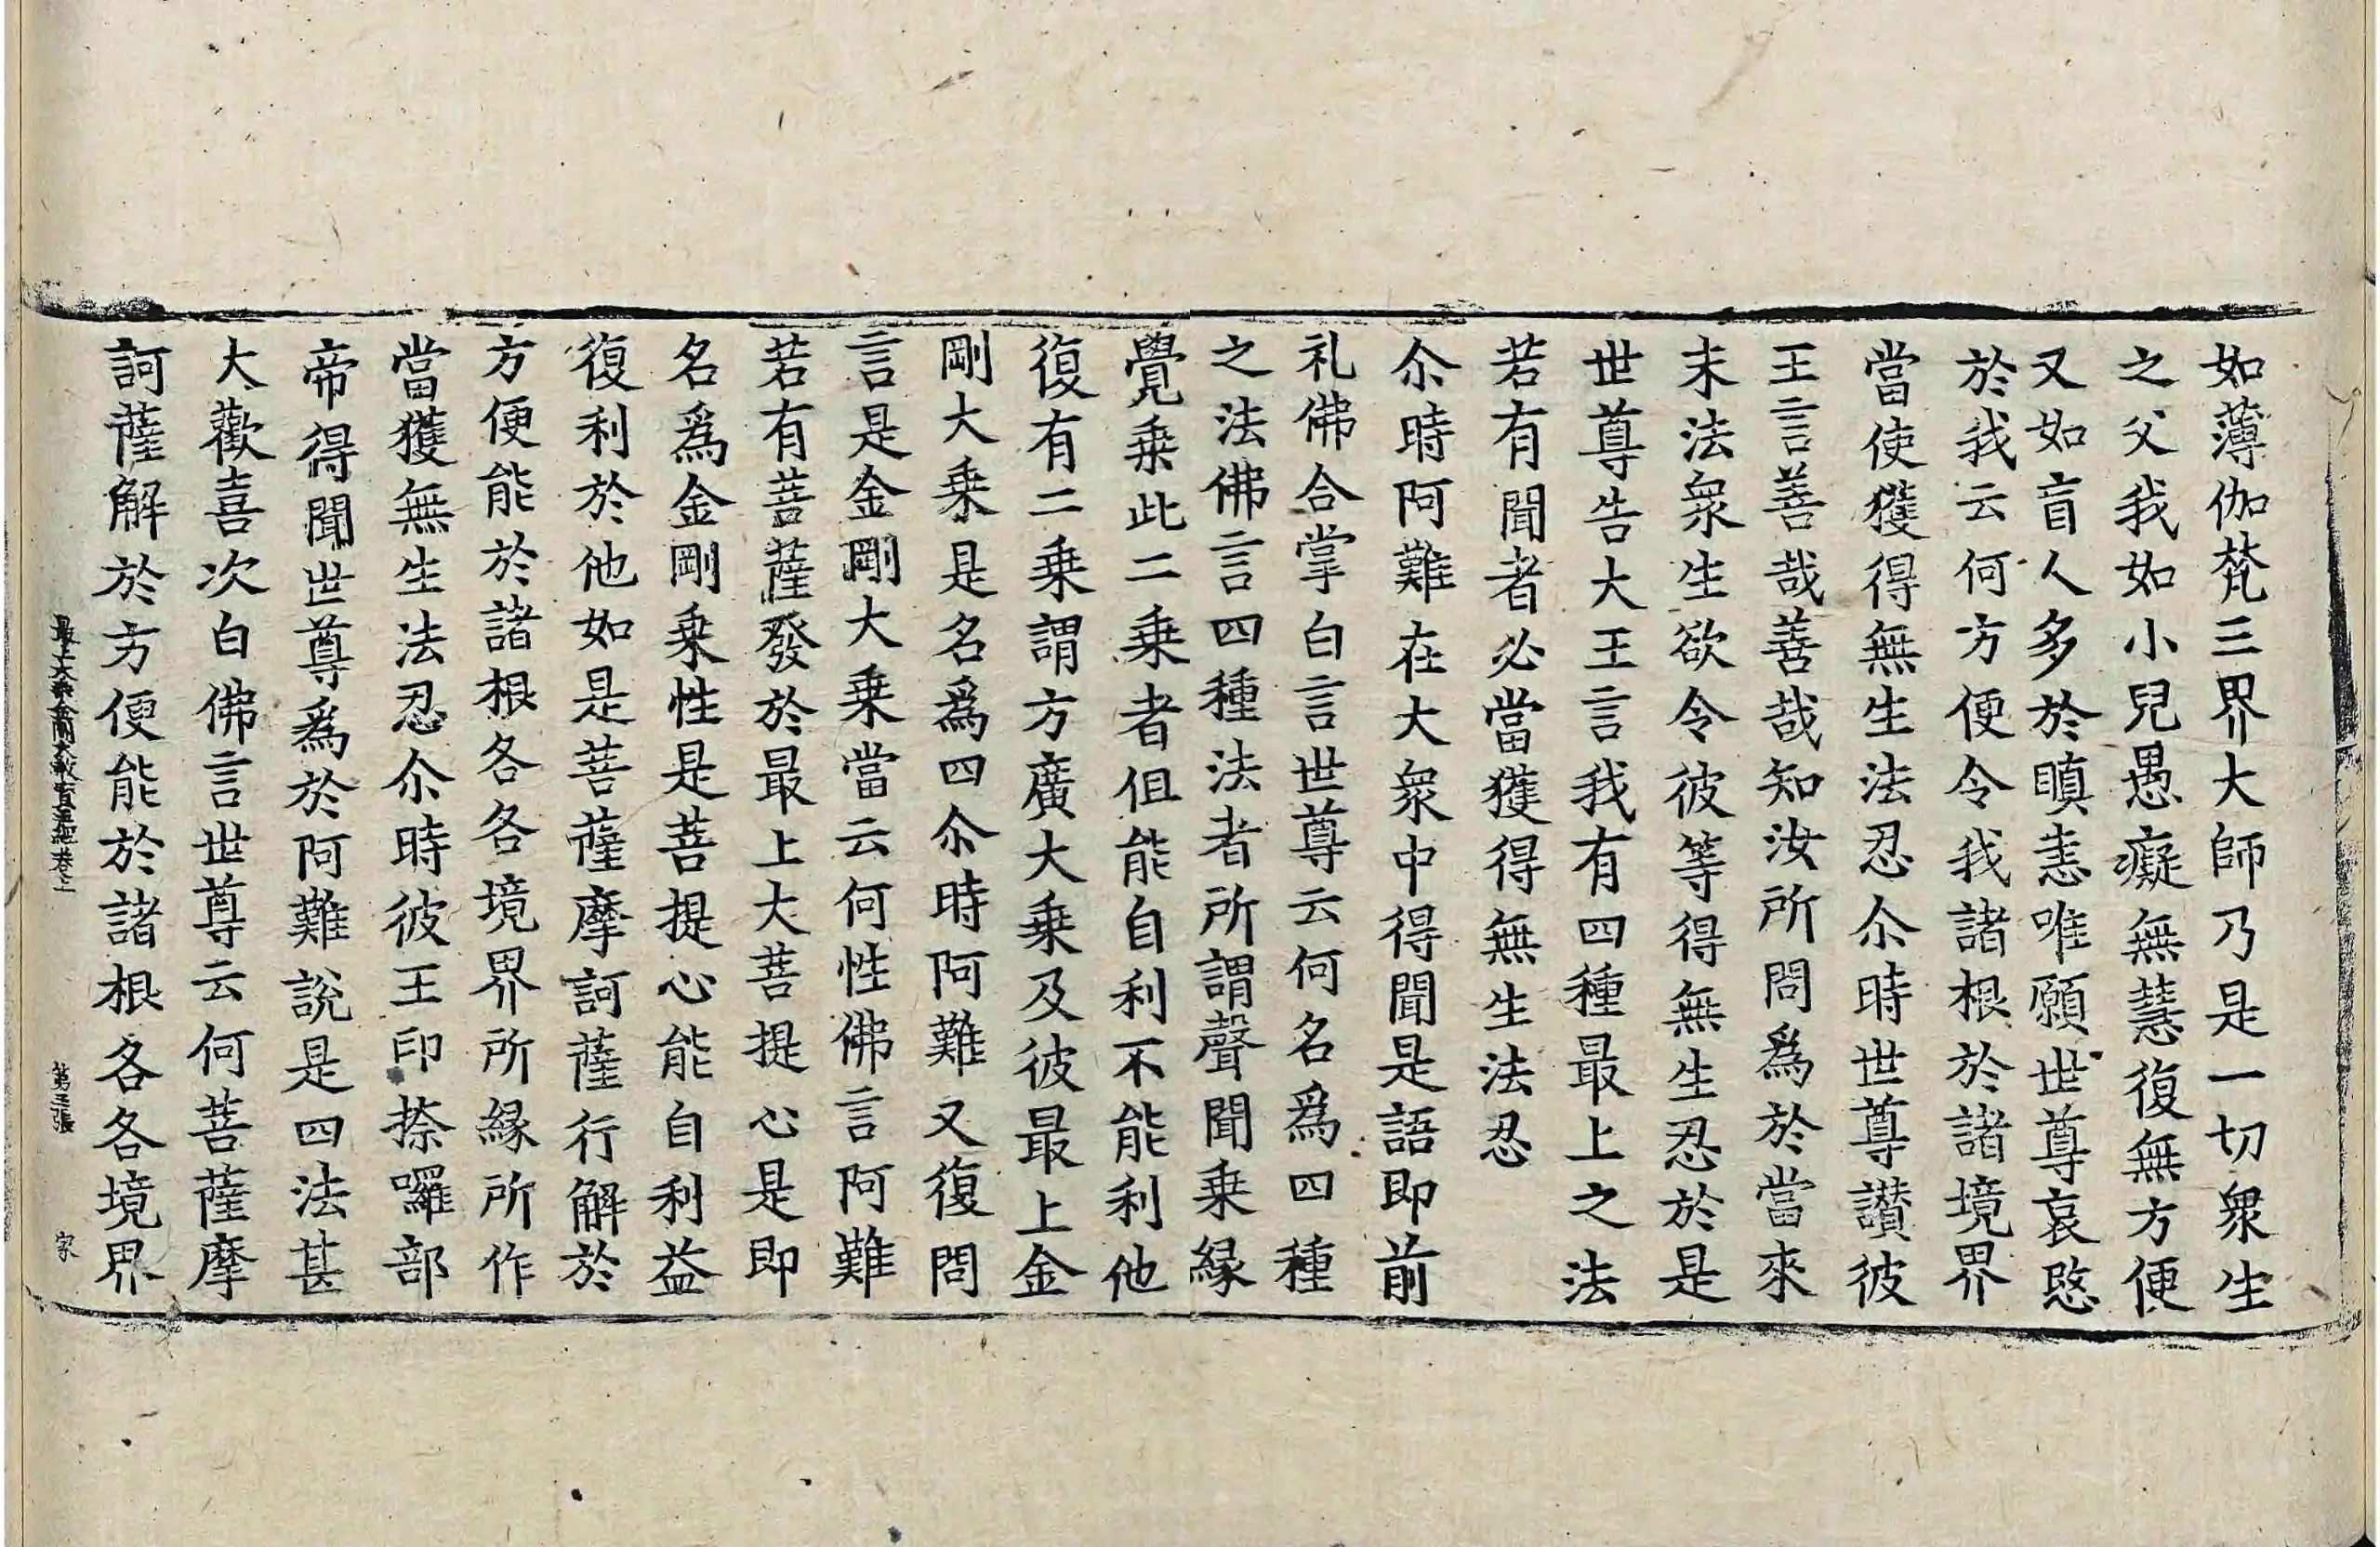 如薄伽梵三界大師乃是一切衆生
之父我如小兒愚癡無慧復無方便
又如盲人多於瞋恚唯願世尊哀愍
於我云何方便令我諸根於諸境界
當使獲得無生法忍尒時世尊讃彼
王言善哉善哉知汝所問爲於當來
末法衆生欲令彼等得無生忍於是
世尊告大王言我有四種最上之法
若有聞者必當獲得無生法忍
尒時阿難在大衆中得聞是語即前
礼佛合掌白言世尊云何名爲四種
之法佛言四種法者所謂聲聞乗緣
覺乗此二乗者但能自利不能利他
復有二乗謂方廣大乗及彼最上金
剛大乗是名爲四尒時阿難又復問
言是金剛大乗當云何性佛言阿難
若有菩薩發於最上大菩提心是即
名爲金剛乗性是菩提心能自利益
復利於他如是菩薩摩訶薩行解於
方便能於諸根各各境界所緣所作
當獲無生法忍尒時彼王印捺囉部
帝得聞世尊爲於阿難說是四法甚
大歡喜次白佛言世尊云何菩薩摩
訶薩解於方便能於諸根各各境界
最上大乗金剛大教寳王經卷上 第三張 家